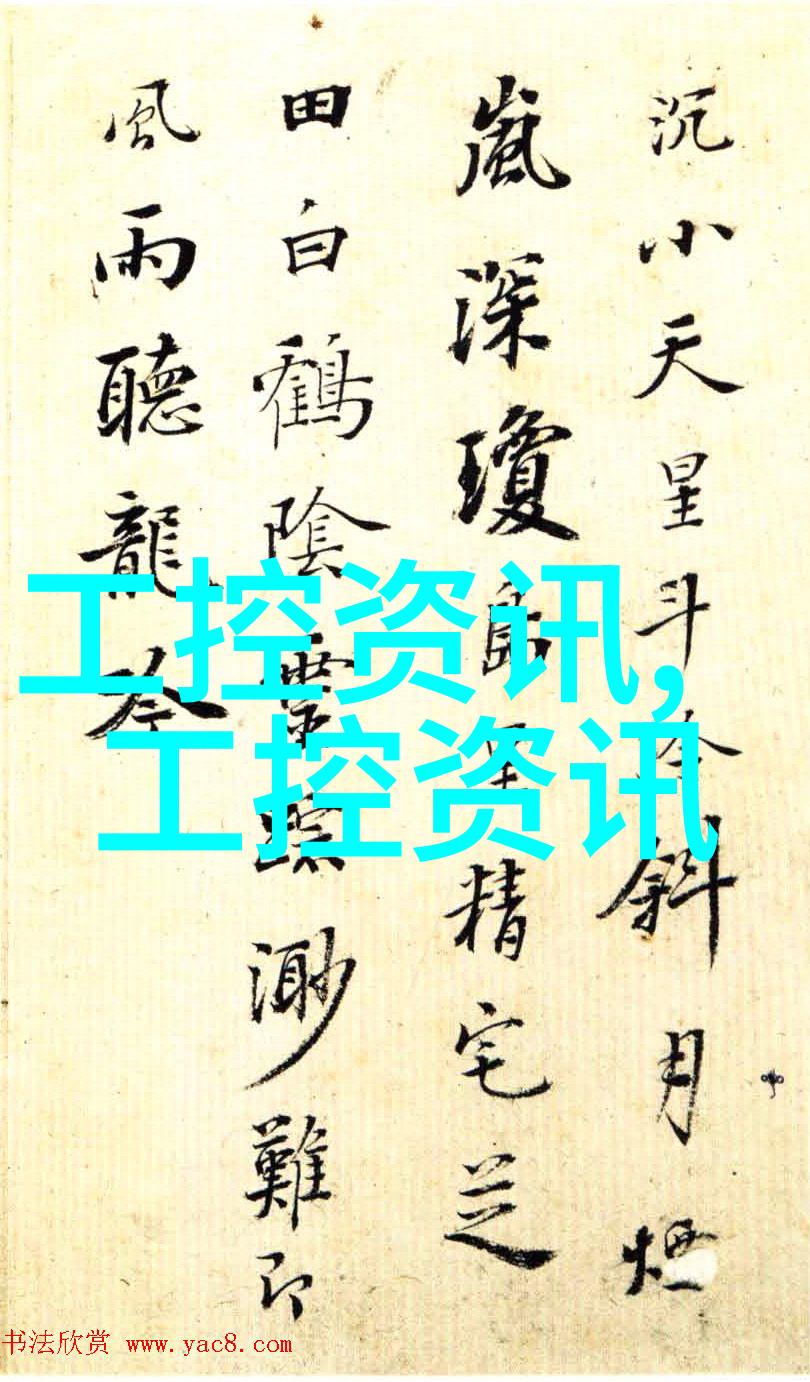 沉小天星斗斜月煙
嵐深瓊島精宅芝
田白鶴陰渺難即
風雨聽龍
工控资讯,
工控资讯
书法欣赏 www.yac8.com